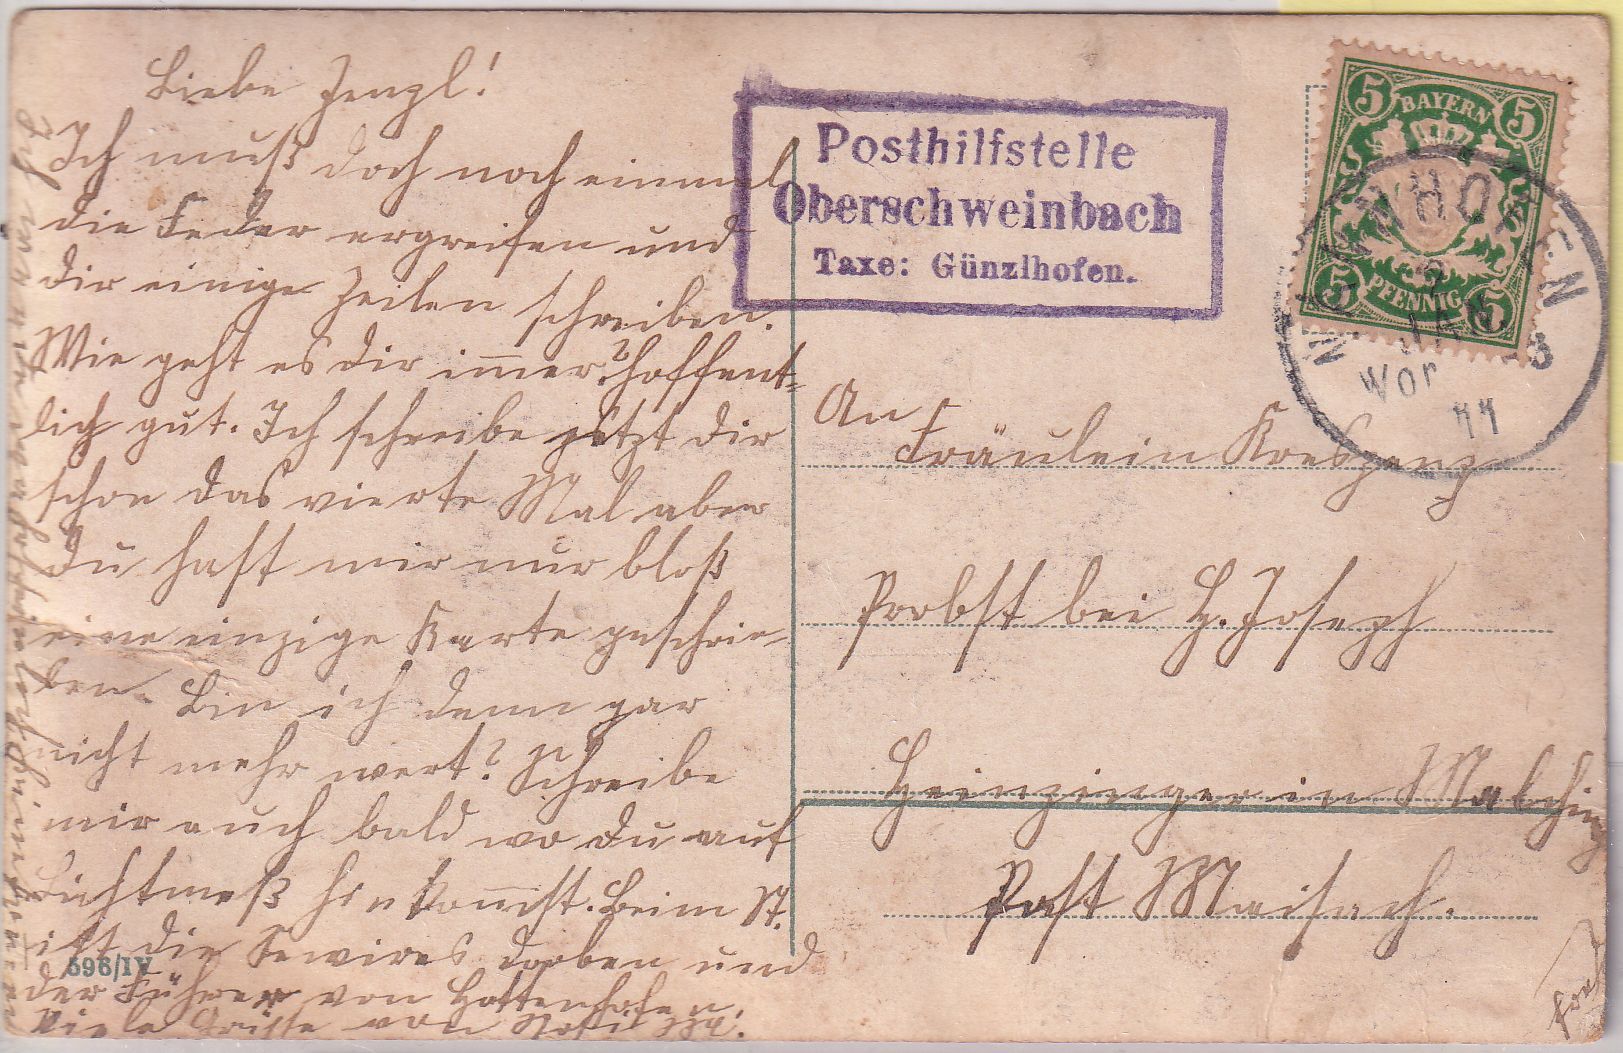 Liebe Zenzl!
Ich muß doch noch einmal
die Feder ergreifen und
dir einige Zeilen schreiben.
Wie geht es dir immer? hoffent-
lich gut. Ich schreibe jetzt dir
schon das vierte Mal aber
Du hast mir nur bloß
eine einzige Karte geschrie-
ben. Bin ich denn gar
nicht mehr wert? Schreibe
mir auch bald wo du auf
Lichtmeß hinkommst. Beim St.
ist die dorben und
der Führer von Hattenhofen.
Viele Grüße von
Ich
596/IV
Posthilfstelle
Oberschweinbach
Taxe: Günzlhofen.
5 BAYERN 5
5 PFENNIG 5
NANNHOFEN
2 JAN.
Vor
11
An
Fräulein Kreszenz
Probst bei H. Joseph
Heinzinger in Malching
Post Maisach.